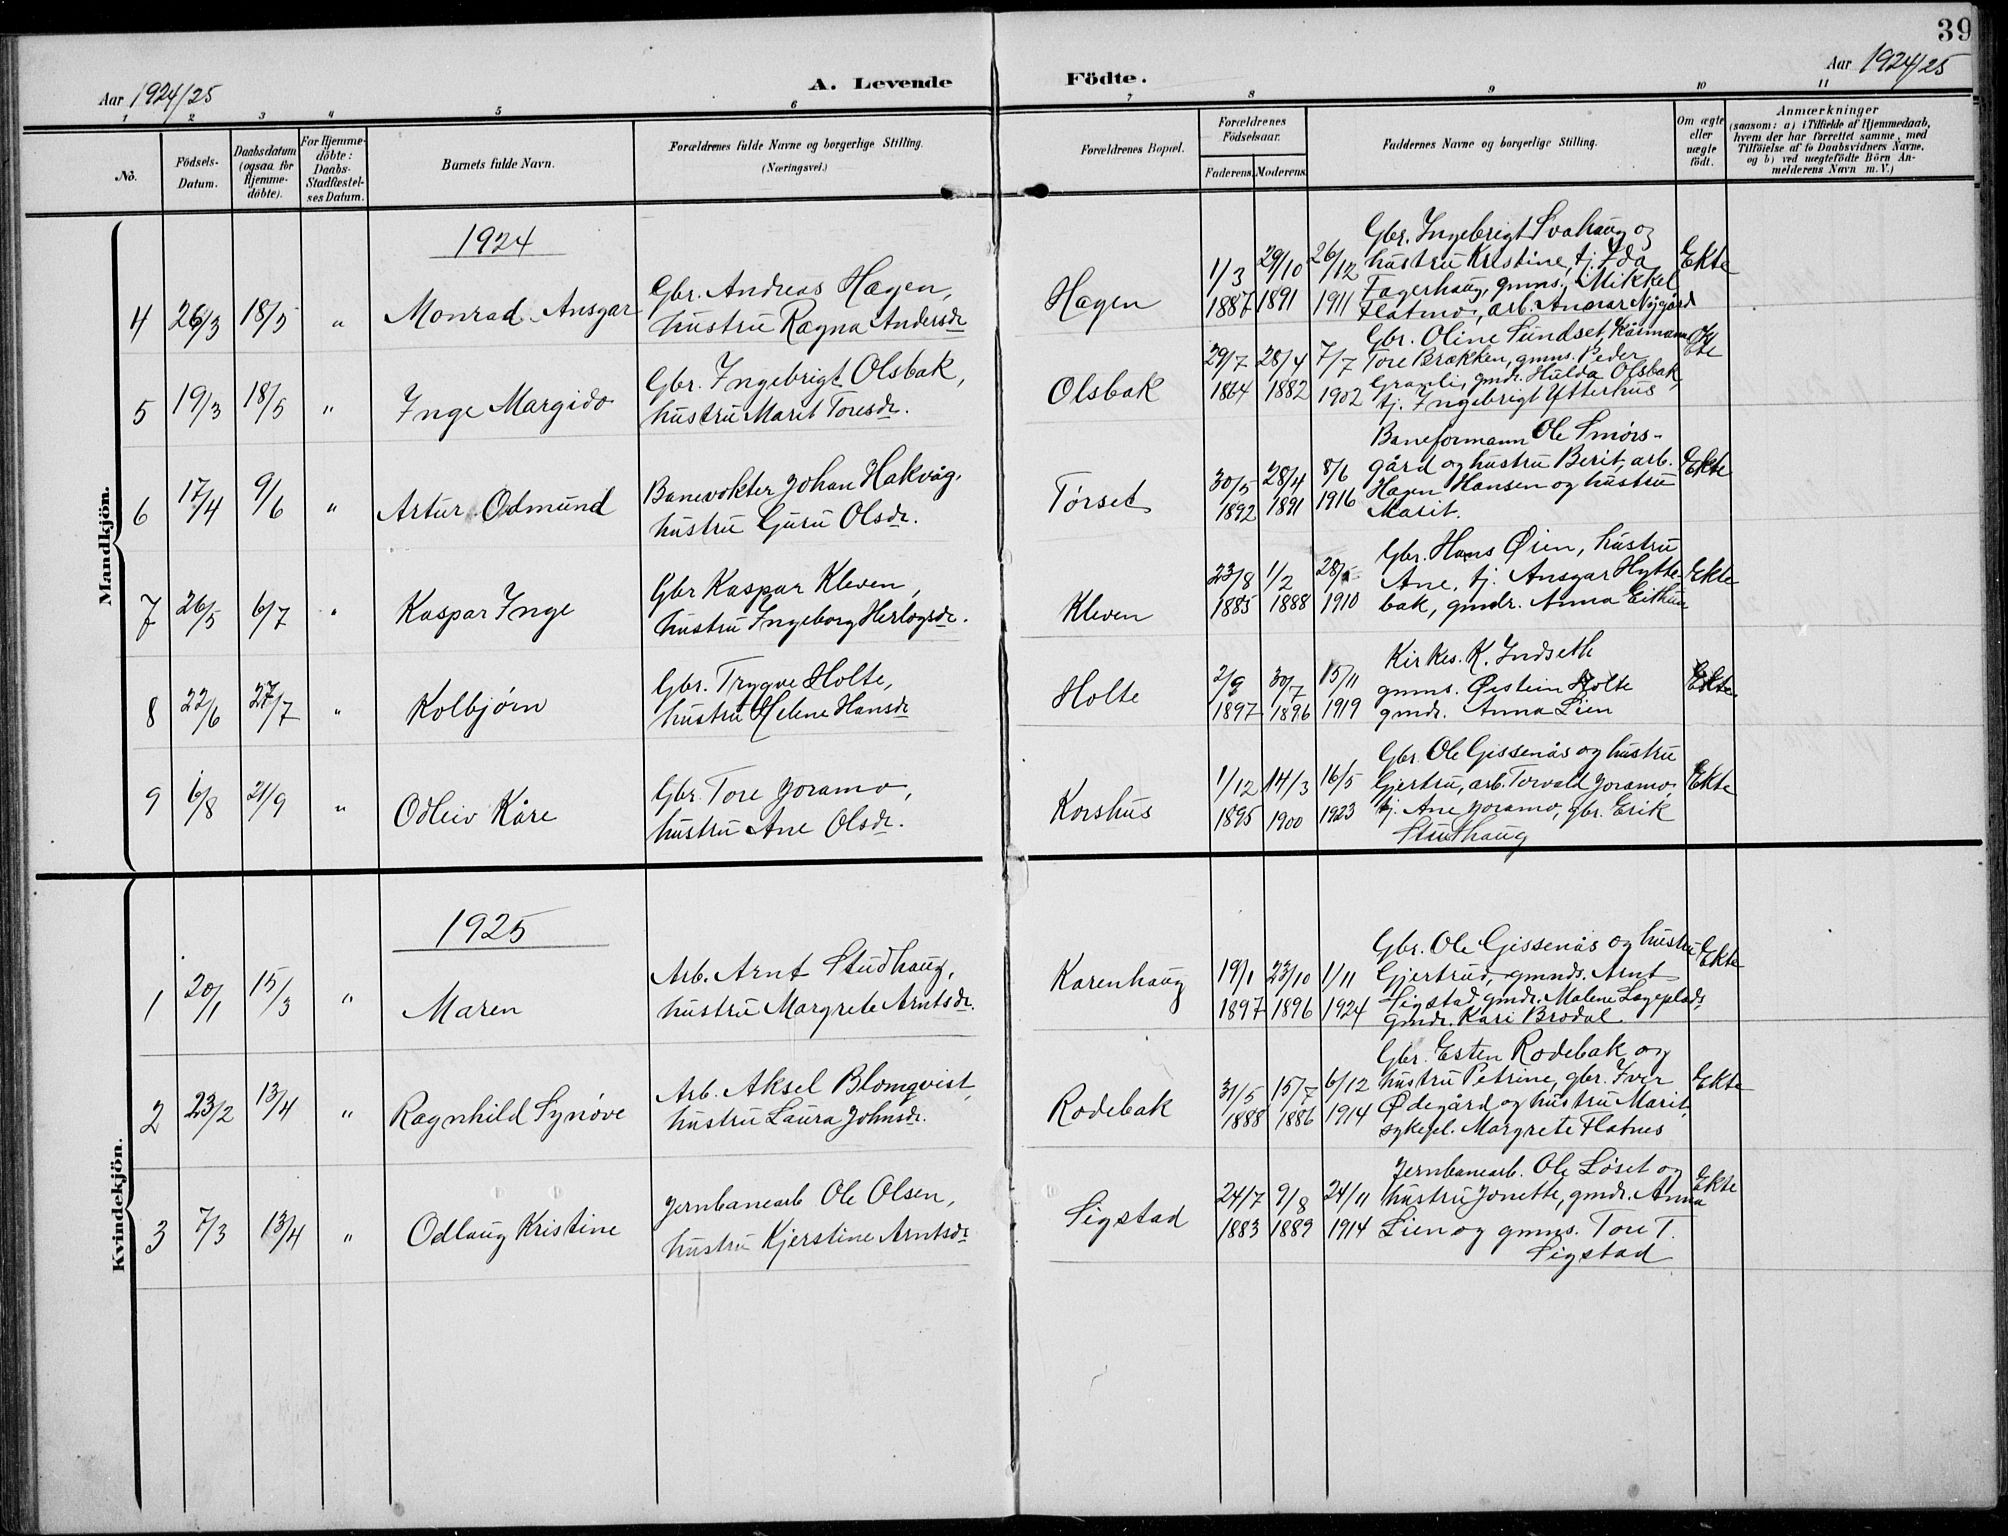 39
Aar 1924/25
A. Levende Födte.
Aar 1924/25
1 2 3 4 5 6 7 8 9 10 11
No.
Födsels-
Datum.
Daabsdatum
(ogsaa for
Hjemme-
döbte).
For Hjemme-
döbte:
Daabs-
Stadfæstel-
ses Datum.
Barnets fulde Navn.
Forældrenes fulde Navne og borgerlige Stilling.
(Næringsvei.)
Forældrenes Bopæl.
Forældrenes
Födselsaar.
Faderens. Moderens.
Faddernes Navne og borgerlige Stilling.
Om ægte
eller
uægte
födt.
Anmærkninger
(saasom: a) i Tilfælde af Hjemmedaab,
hvem der har forrettet samme, med
Tilföielse af to Daabsvidners Navne,
og b) ved uægtefödte Börn An-
melderens Navn m.V.)
Mandkjön.
1924
4 26/3 18/5 " Monrad Ansgar
Gbr. Andreas Hagen,
hustru Ragna Andersdr
Hagen
1/3 1887
29/10 1891
26/12 1911
Gbr. Ingebrigt Svahaug og
hustru Kristine, tj. Ida
Fagerhaug, gmns. Mikkel
Flatmo, arb. Nygård
Ekte
5 19/3 18/5 " Inge Margido
Gbr. Ingebrigt Olsbak,
hustru Marit Toresdr.
Olsbak
29/7 1864
28/4 1882
7/7 1902
Gbr. Oline Sundset,
Tore Brækken, gmns. Peder
Granli, gmdr. Hulda Olsbak,
tj. Ingebrigt Ytterhus
6 17/4 9/6 " Artur Odmund
Banevokter Johan Hakvåg,
hustru Guru Olsdr.
Tørset
30/5 1892
28/4 1891
8/6 1916
Baneformann Ole Smørs-
gård og hustru Berit, arb.
Hagen Hansen og hustru
Marit.
Ekte
7 26/5 6/7 " Kaspar Inge
Gbr Kaspar Kleven,
hustru Ingeborg Herlogsdr.
Kleven
23/8 1885
1/2 1888
1910
Gbr. Hans Øien, hustru
Ane, tj. Ansgar Hytte-
bak, gmdr. Anna Eithun
Ekte
8 22/6 27/7 " Kolbjørn
Gbr. Trygve Holte,
hustru Helene Hansdr
Holte
2/9 1897
30/7 1896
15/11 1919
Kirkes. K. Indseth
gmns. Øistein Holte
gmdr. Anna Lien
Ekte
9 6/8 21/9 " Odleiv Kåre
Gbr. Tore Joramo,
hustru Ane Olsdr.
Korshus
1/12 1895
14/3 1900
16/5 1923
Gbr. Ole Gissenås og hustru
Gjertru, arb. Torvald Joramo,
tj. Ane Joramo, gbr. Erik
Studhaug
Ekte
Kvindekjön.
1925
1 20/11 15/3 " Maren
Arb. Arnt Studhaug,
hustru Margrete Arntsdr.
Karenhaug
19/1 1897
23/10 1896
1/11 1924
Gbr. Ole Gissenås og hustru
Gjertrud, gmnds. Arnt
Sigstad, gmdr. Malene Lageplads
gmdr. Kari Brodal
Ekte
2 23/2 13/4 " Ragnhild Synøve
Arb. Aksel Blomqvist,
hustru Laura Johnsdr.
Rodebak
31/5 1888
15/7 1886
6/12 1914
Gbr. Esten Rodebak og
hustru Petrine, gbr. Iver
Ødegård og hustru Marit,
sykepl. Margrete Flatnes
Ekte
3 7/3 13/4 " Odlaug Kristine
Jernbanearb Ole Olsen,
hustru Kjerstine Arntsdr
Sigstad
24/7 1883
9/8 1889
24/11 1914
Jernbanearb. Ole Løset og
hustru Jonette, gmdr. Anna
Lien og gmns. Tore T.
Sigstad
Ekte